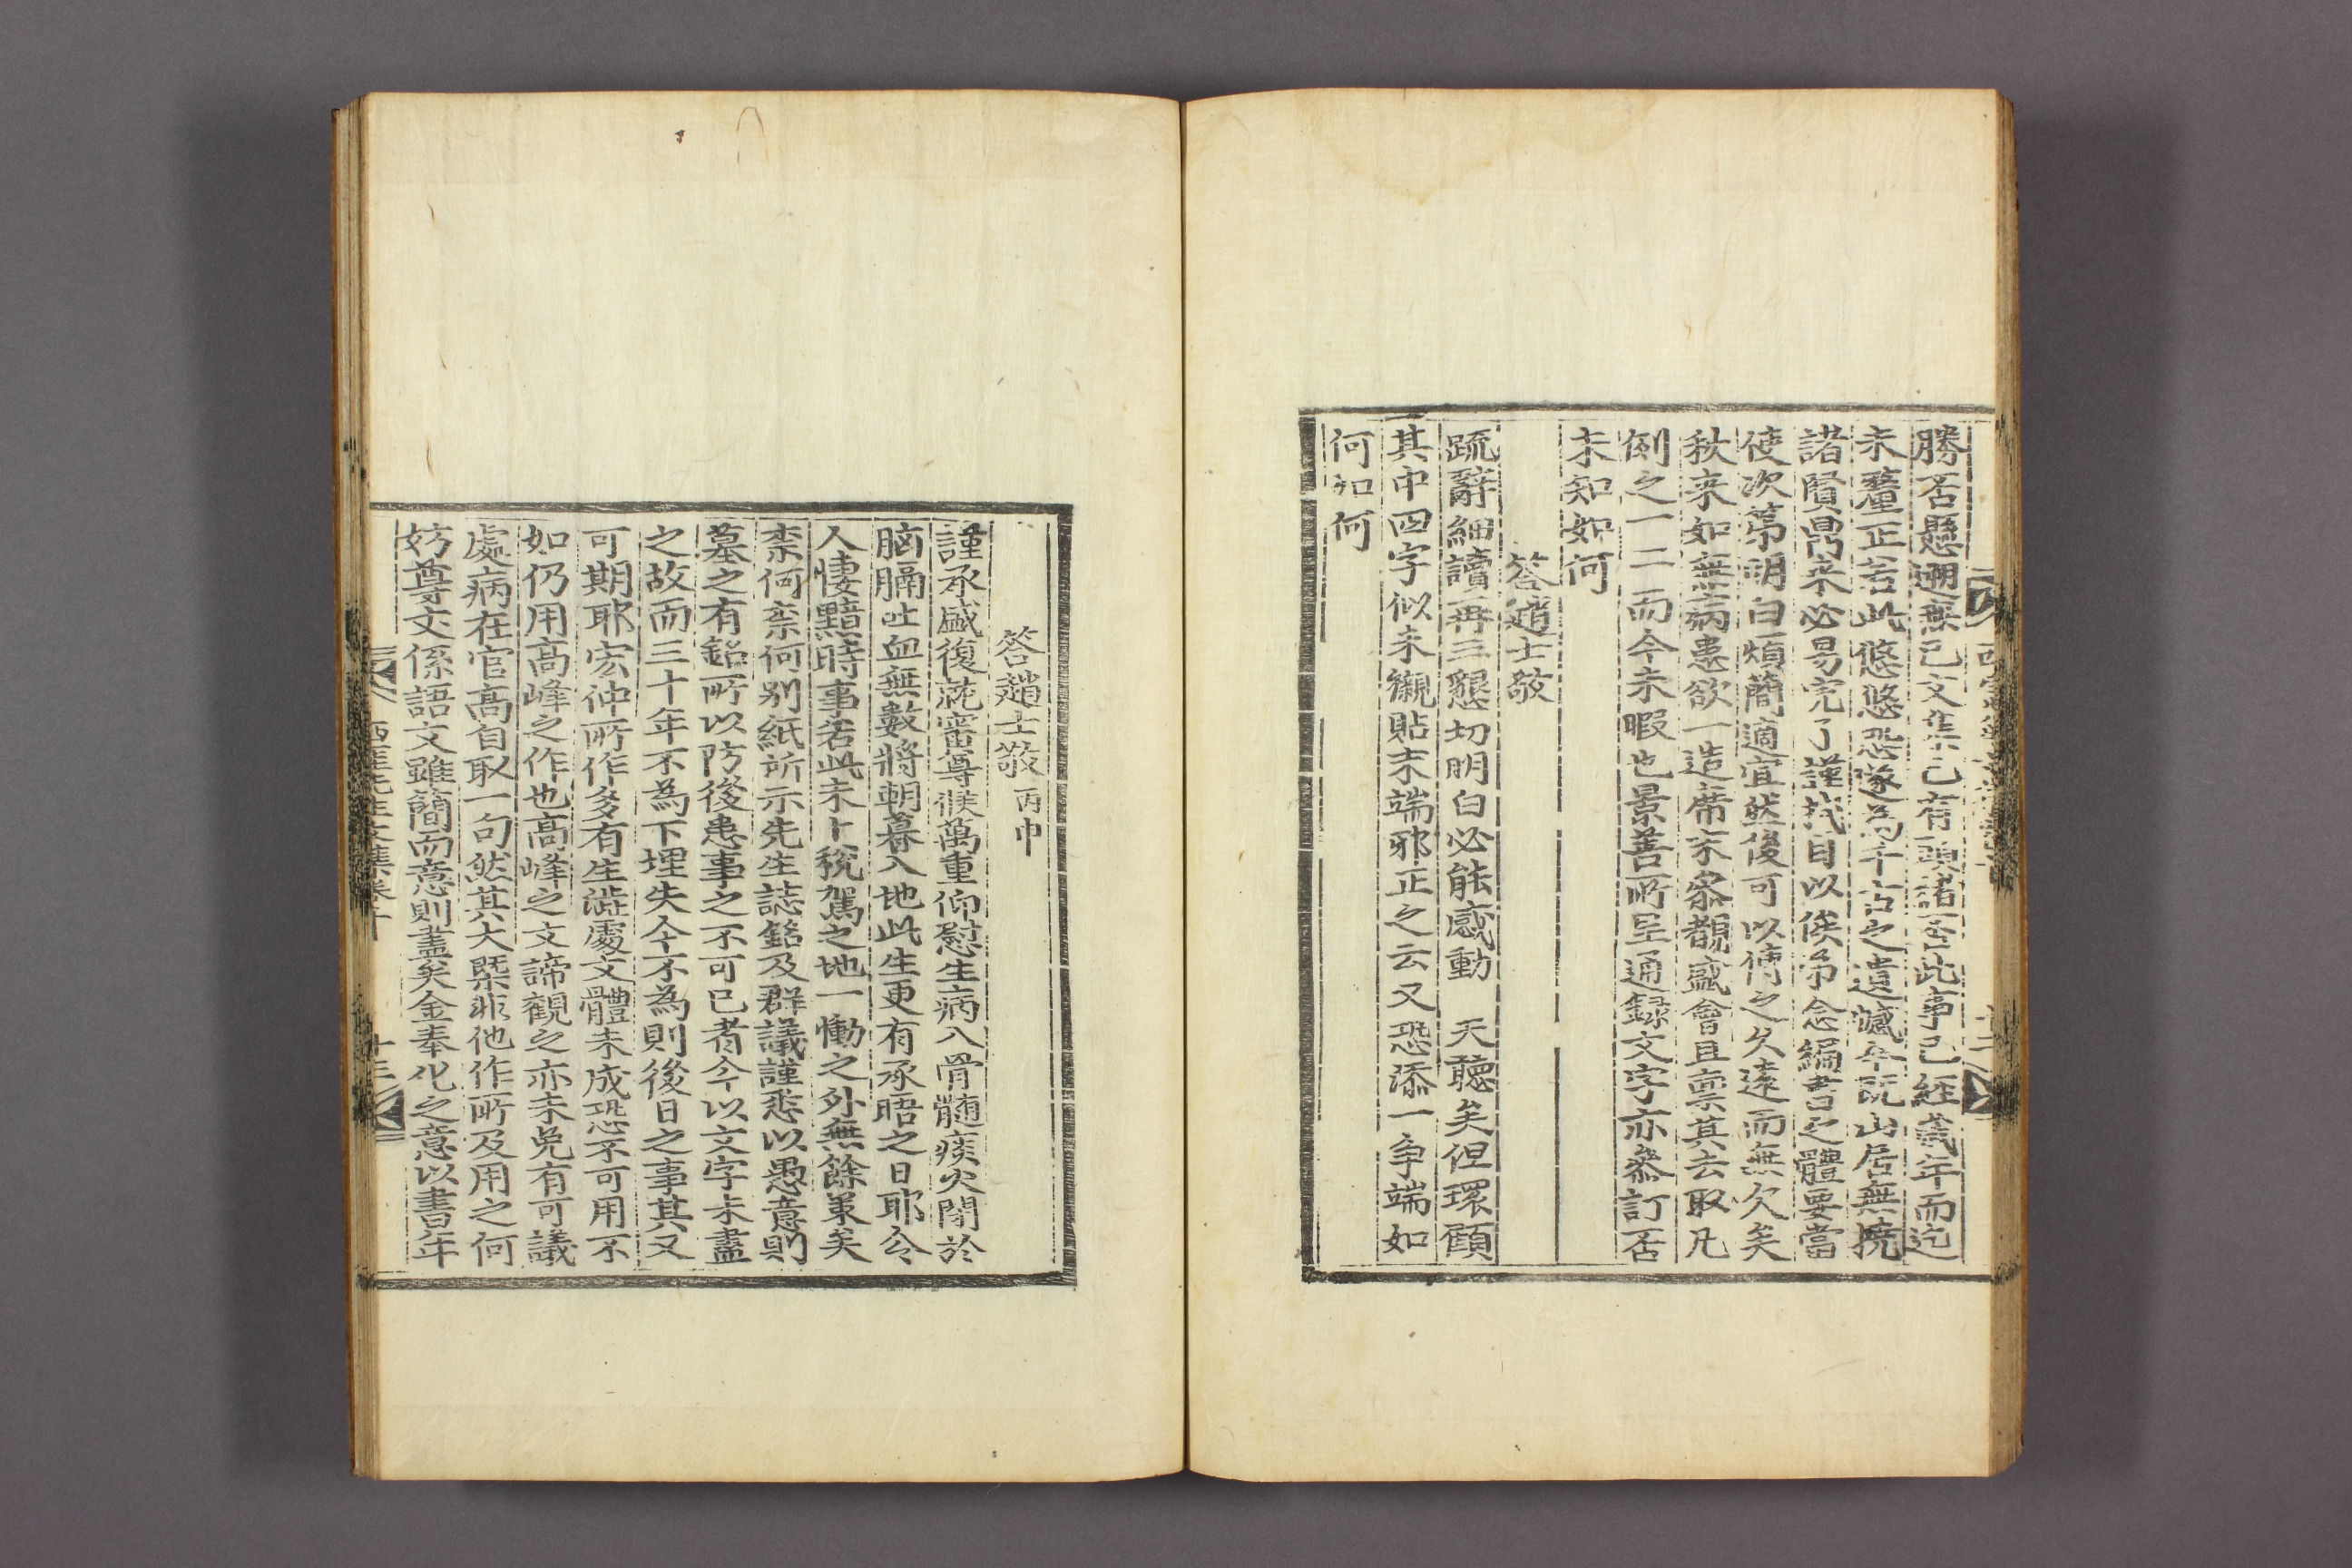 勝否懸遡無已文集已有頭緒否此事已經歲年而迄
未釐正若此悠悠恐遂爲千古之遺憾年旣山居無撓
諸賢鼎来必易完了謹拭目以俟弟念編書之體要當
使次第明白煩簡適宜然後可以傳之久遠而無欠矣
秋来如無病患欲一造席末叅覩盛會且稟其去取凡
例之一二而今未暇也景善所呈通録文字亦叅訂否
未知如何
答趙士敬
疏辭細讀再三懇切明白必能感動 天聽矣但環顧
其中四字似未襯貼末端邪正之云又恐添一争端如
何如何
答趙士敬 丙申
謹承盛復蓰審尊候萬重仰慰生病入骨髄痰火閉於
脑膈吐血無數將朝暮入地此生更有承晤之日耶令
人悽黯時事若此未卜稅駕之地一慟之外無餘策矣
柰何柰何别紙所示先生誌銘及群議謹悉以愚意則
墓之有銘所以防後患事之不可已者今以文字未盡
之故而三十年不為下埋失今不為則後日之事其又
可期耶宏仲所作多有生澁處文體未成恐不可用不
如仍用高峰之作也高峰之文諦觀之亦未免有可議
處病在官高自取一句然其大槩非他作所及用之何
妨尊文係語文雖簡而意則盡矣金奉化之意以書年
西厓先生文集卷十 十三